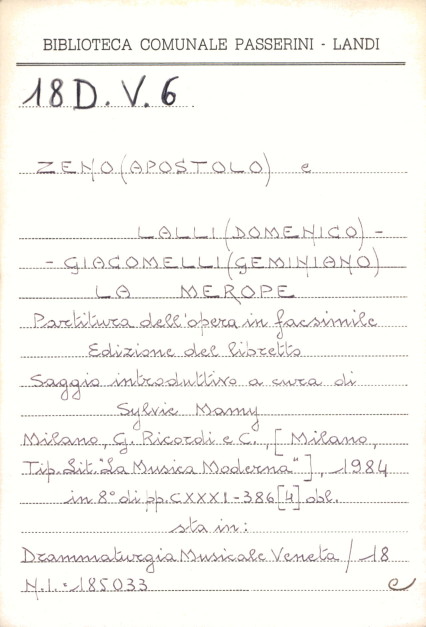 BIBLIOTECA COMUNALE PASSERINI - LANDI
18 D. V. 6
ZENO (APOSTOLO) e
LALLI (DOMENICO) -
- GIACOMELLI (GEMINIANO)
LA MEROPE
Partitura dell'opera in facsimile
Edizione del libretto
Saggio introduttivo a cura di
Sylvie Mamy
Milano, G. Ricordi e C., [Milano,
Tip. Lit. "La Musica Moderna"], 1984
in 8° di pp. CXXXI-386 [4] obl.
sta in:
Drammaturgia Musicale Veneta / 18
N.I. 185033 e